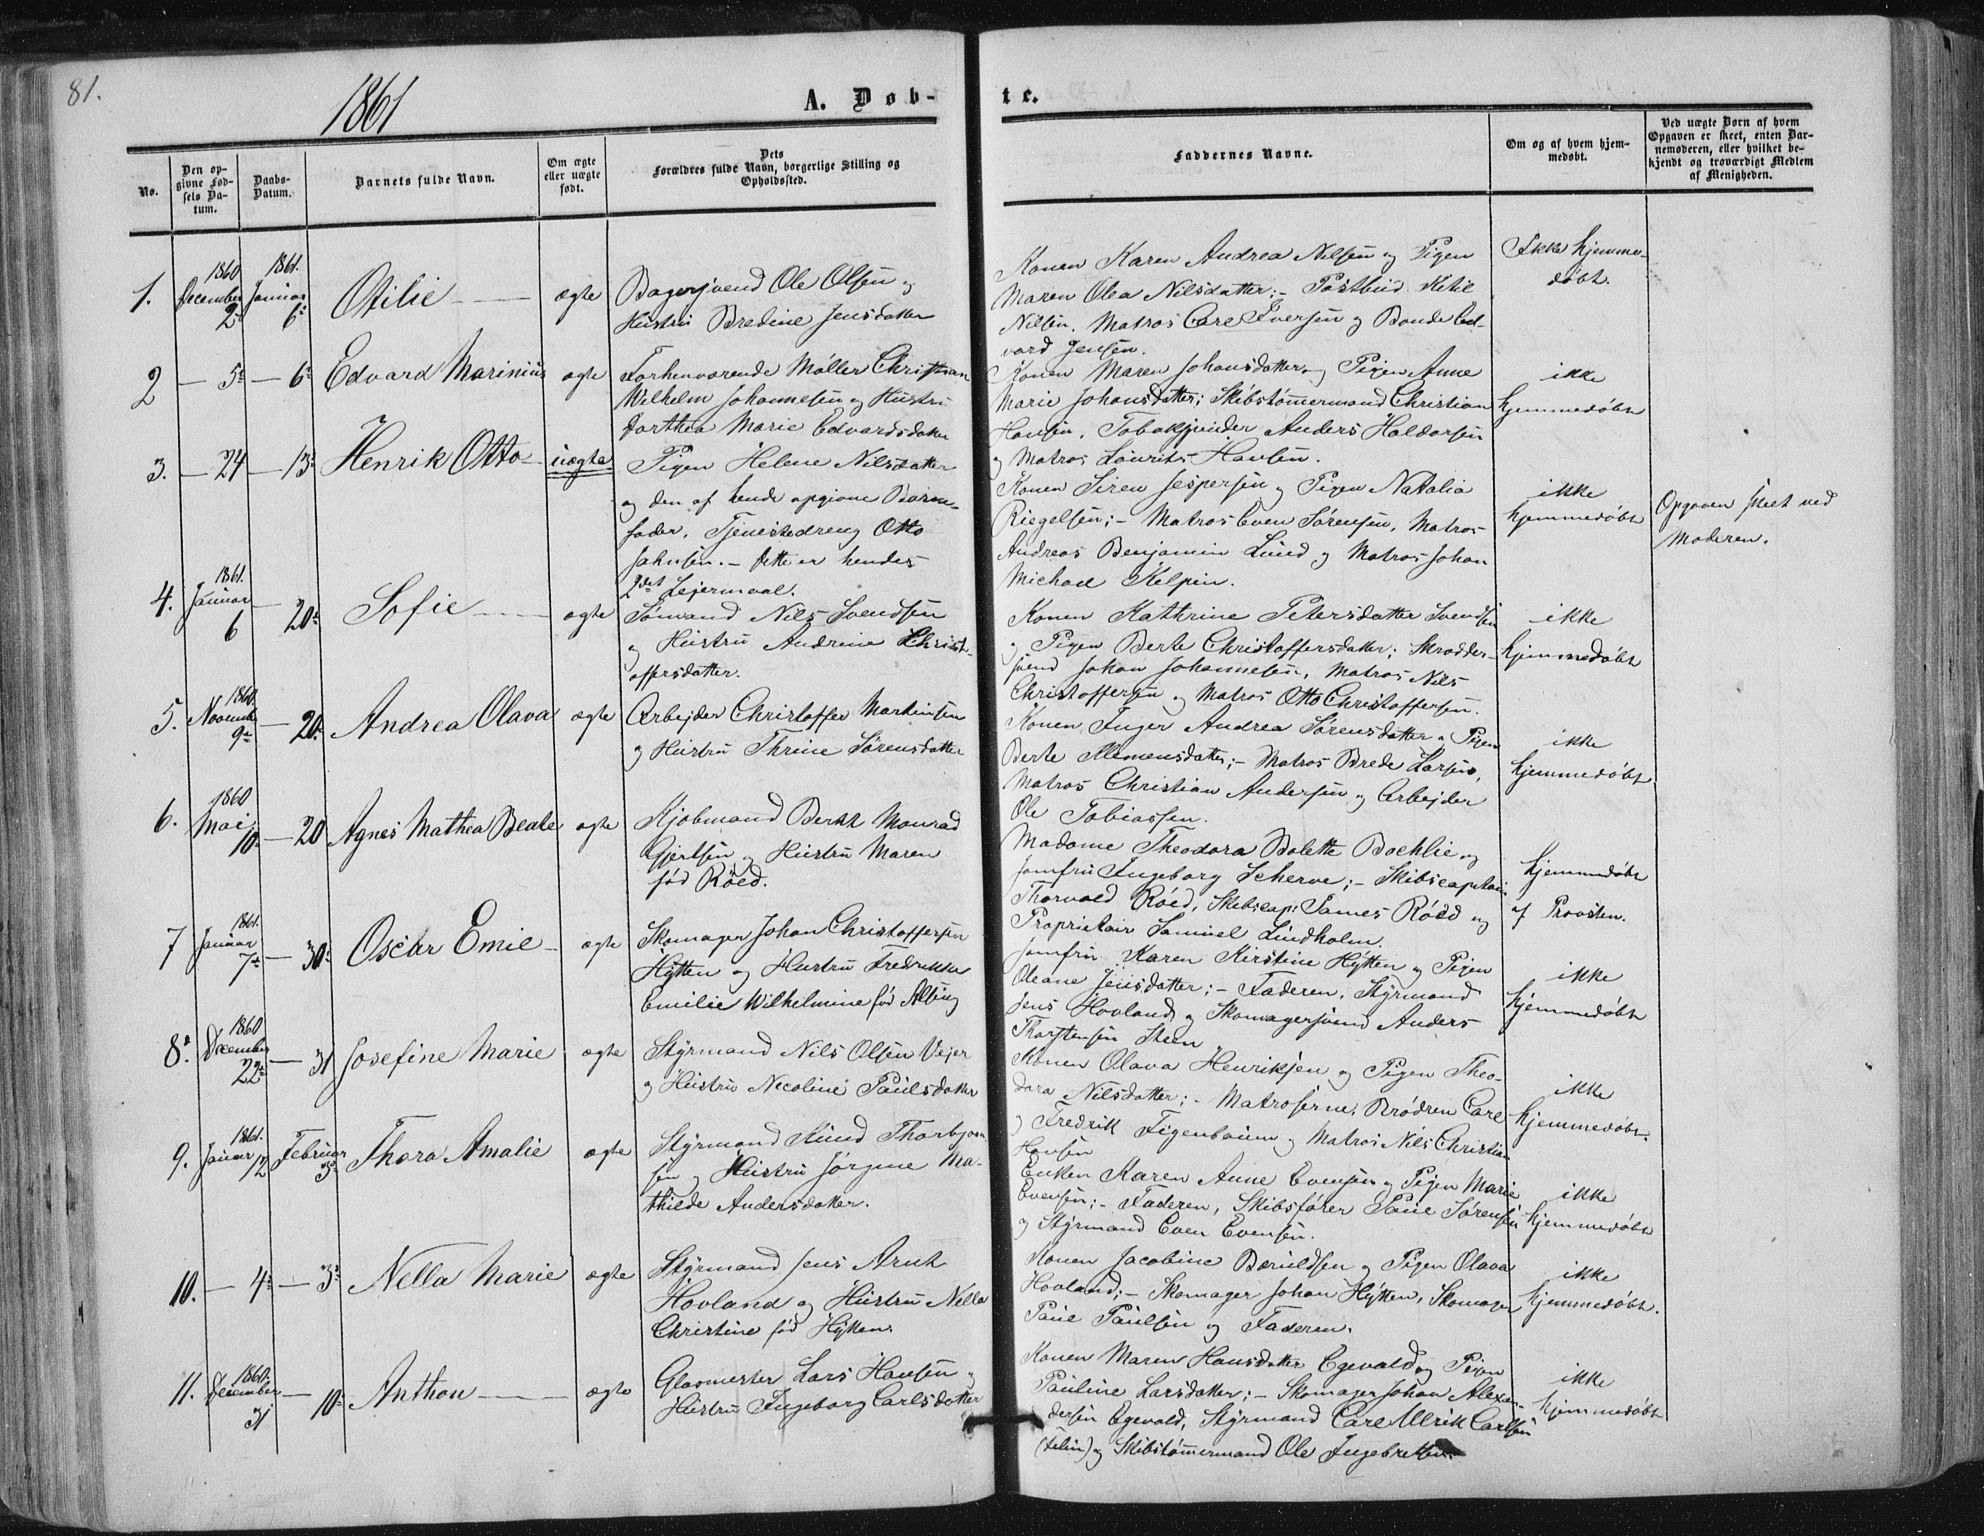 81.
1861
A. Døb-
te.
No.
Den op-
givne Fød-
sels Da-
tum.
Daabs-
Datum.
Barnets fulde Navn.
Om ægte
eller uægte
født.
Dets
Forældres fulde Navn, borgerlige Stilling og
Opholdssted.
Faddernes Navne.
Om og af hvem hjem-
medøbt.
Ved uægte Børn af hvem
Opgaven er skeet, enten Bar-
nemoderen, eller hvilket be-
kjendt og troværdigt Medlem
af Menigheden.
1.
1860
December
2
1861.
Januar
6
Otilie
ægte
Bagersvend Ole Olsen og
Hustru Bredine Jensdatter
Konen Karen Andrea Nilsen og Pigen
Maren Olea Nilsdatter; - Postbud Ketil
Nilsen, Matros Carl Iversen og Bonde Ed-
vard Jensen.
Ikke hjemme-
døbt.
2 - 5 - 6 Edvard Marinius ægte
Forhenværende Møller Christian
Wilhelm Johannesen og Hustru
Dorthea Marie Edvardsdatter
Konen Maren Johansdatter og Pigen Anne
Marie Johansdatter; Skibstømmermand Christian
Hansen, Tobakspinder Anders Haldorsen
og Matros Lauritz Hansen.
ikke
hjemmedøbt
3. - 24 - 13 Henrik Otto - uægte.
Pigen Helene Nilsdatter
og den af hende opgivne Barne-
fader, Tjenestedreng Otto
Jahnsen. - Dette er hendes
2det Lejermaal.
Konen Siren Jespersen og Pigen Natalia
Riegelsen; - Matros Even Sørensen, Matros
Andreas Benjamin Lund og Matros Johan
Michael Kelpin.
ikke
hjemmedøbt
Opgaven skeet ved
Moderen.
4.
1861.
Januar
6
- 20 Sofie - ægte
Sømand Nils Svendsen
og Hustru Andrine Christ-
offersdatter.
Konen Kathrine Petersdatter Svendsen
og Pigen Berte Christoffersdatter; Skrædder-
svend Johan Johannesen, Matros Nils
Christoffersen og Matros Otto Christoffersen.
ikke
hjemmedøbt
5.
1860
Novemb.
9
- 20. Andrea Olava ægte
Arbejder Christoffer Martinsen
og Hustru Thrine Sørensdatter
Konen Inger Andrea Sørensdatter og Pigen
Berte Klemensdatter; - Matros Brede Larsen,
Matros Christian Andersen og Arbejder
Ole Tobiassen.
ikke
hjemmedøbt.
6.
1860
Mai
10
- 20 Agnes Mathea Beate ægte
Kjøbmand Berth Monrad
Gjertsen og Hustru Maren
født Røed.
Madame Theodora Bolette Bochlie og
Jomfru Ingeborg Scherve; - Skibscapitain
Thorvald Røed, Skibscap: James Røed og
Proprietair Samuel Lindholm.
hjemmedøbt
af Provsten.
7
1861.
Januar
7
- 30 Oscar Emil - ægte
Skomager Johan Christoffersen
Hÿtten og Hustru Fredrikke
Emilie Wilhelmine født
Jomfru Karen Kirstine Hÿtten og Pigen
Oleane Jensdatter; - Faderen, Stÿrmand
Jens Hovland og Skomagersvend Anders
Thorstensen Steen
ikke
hjemmedøbt
8.
1860
December
22
- 31 Josefine Marie ægte
Stÿrmand Nils Olsen Vejer
og Hustru Nicoline Paulsdatter
Konen Olava Henriksen og Pigen Theo-
dora Nilsdatter; - Matroserne, Brødren Carl
og Fredrik Figenbaum og Matros Nils Christian
Hansen
ikke
hjemmedøbt.
9.
1861.
Januar
12
Februar
3
Thora Amalie ægte
Stÿrmand Knud Thorbjørn-
sen og Hustru Jørgine Ma-
thilde Andersdatter.
Enken Karen Anne Evensen og Pigen Marie
Evensen; - Faderen, Skibsfører Paul Sørensen
og Stÿrmand Even Evensen.
ikke
hjemmedøbt
10. - 4 - 3 Nella Marie ægte
Stÿrmand Jens Arnt
Hovland og Hustru Nella
Christine født Hÿtten.
Konen Jacobine Beruldsen og Pigen Olava
Hovland; - Skomager Johan Hÿtten, Skomager
Paul Paulsen og Faderen.
ikke
hjemmedøbt.
11.
1860.
December
31
- 10 Anthon - ægte
Glasmester Lars Hansen og
Hustru Ingeborg Carlsdatter
Konen Maren Hansdatter Egevald og Pigen
Pauline Larsdatter; - Skomager Johan Alexan-
dersen Egevald, Stÿrmand Carl Ulrik Carlsen
og Skibstømmermand Ole Ingebretsen.
ikke
hjemmedøbt